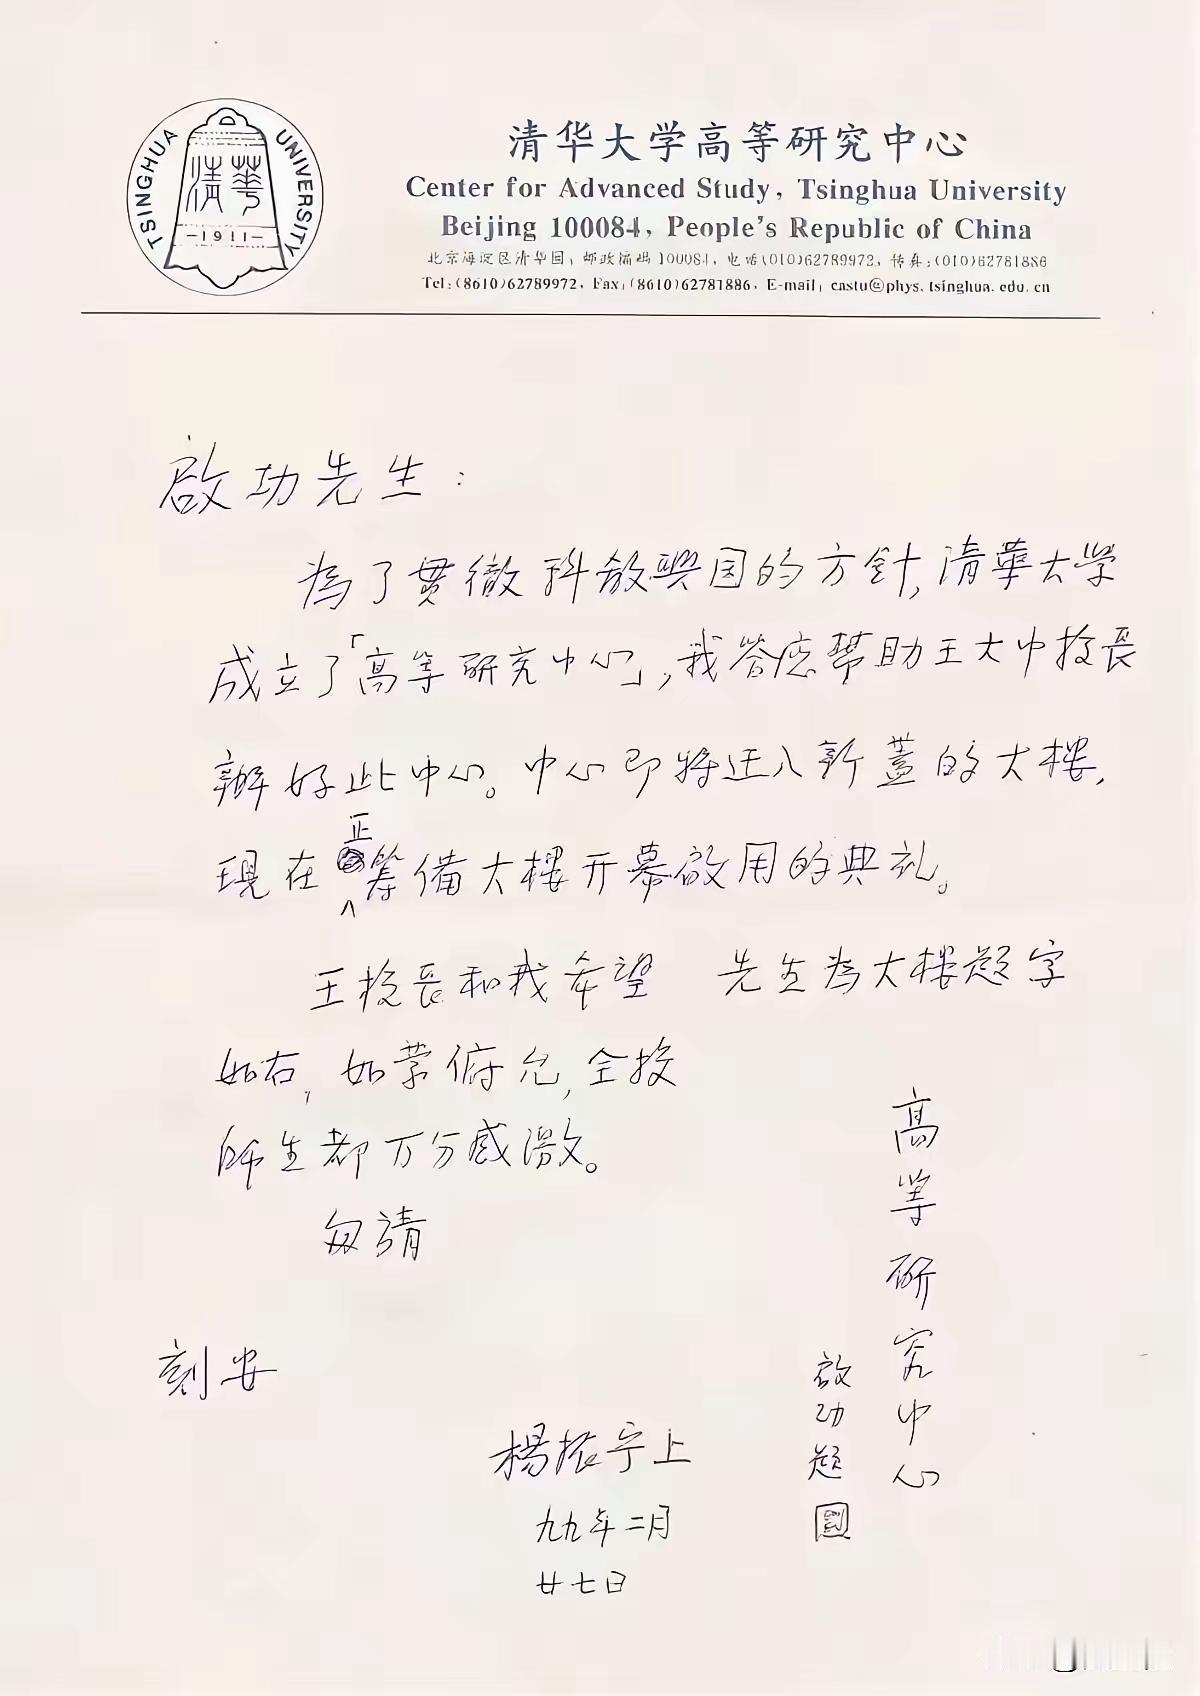 TSINGHUA UNIVERSITY
清華
-1911-
清华大学高等研究中心
Center for Advanced Study, Tsinghua University
Beijing 100084, People's Republic of China
北京海淀区清华园, 邮政编码 100084, 电话(010)62789972, 传真:(010)62781886
Tel:(8610)62789972, Fax:(8610)62781886, E-mail: castu@phys.tsinghua.edu.cn
啟功先生:
為了贯徹科教興国的方針,清華大学
成立了「高等研究中心」,我答应幫助王大中校長
辦好此中心。中心即将迁入新蓋的大樓,
現在正籌備大樓开幕啟用的典礼。
王校長和我希望 先生為大樓題字
如右,如蒙俯允,全校
師生都万分感激。
匆請
刻安
楊振宁上
九九年二月
廿七日
高等研究中心
啟功題